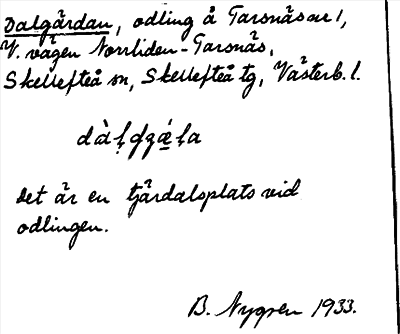 Dalgärdan, odling å Tarsnäs nr 1,
V. vägen Norrliden - Tarsnäs,
Skellefteå sn, Skellefteå tg, Västerb. l.
Det är en tjärdalsplats vid
odlingen.
B. Nygren 1933.